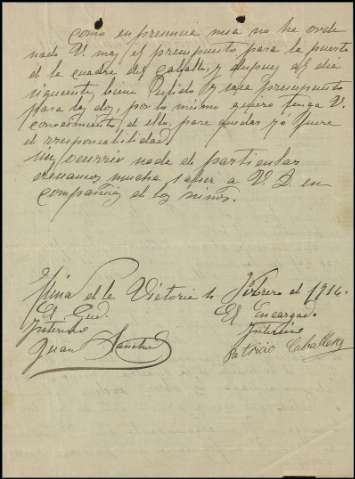 Como en presencia mia no ha orde
nado V. mas el presupuesto para la puerta
de la cuadra del caballo, y despues al dia
siguiente, biene Pulido y saca presupuesto
para las dos, por lo mismo quiero tenga V.
conocimiento de ello, para quedar yo fuera
de irresponsabilidad
No ocurrio nada de particular
deseamos mucha salud a V. D. en
compañia de los niños.
Mina de la Victoria 10 Febrero de 1916.
El Gud. El Encargado
Interino Interino
Juan Sanchez Patricio Caballero